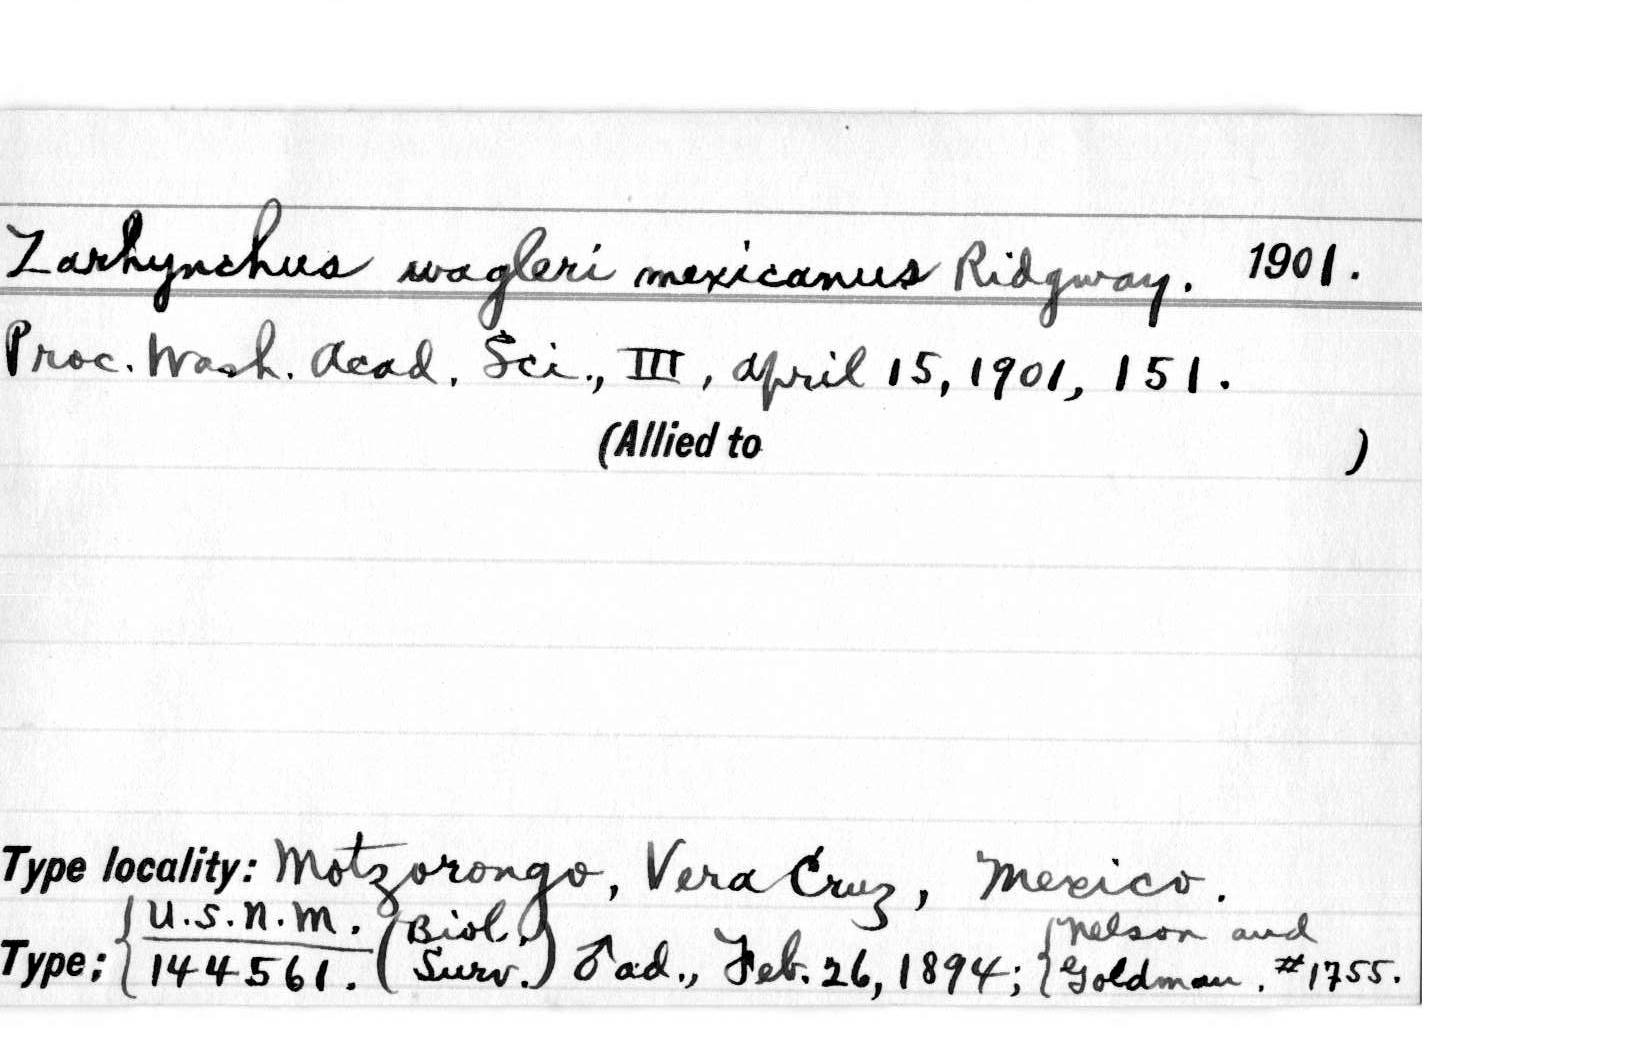 Zarhynchus wagleri mexicanus Ridgway. 1901.
Proc. Wash. Acad. Sci., III, April 15, 1901, 151.
(Allied to )
Type locality: Motzorongo, Vera Cruz, Mexico.
Type: { U.S.N.M. 144561. (Biol. Surv.) ♂ ad., Feb. 26, 1894; { Nelson and Goldman. #1755.